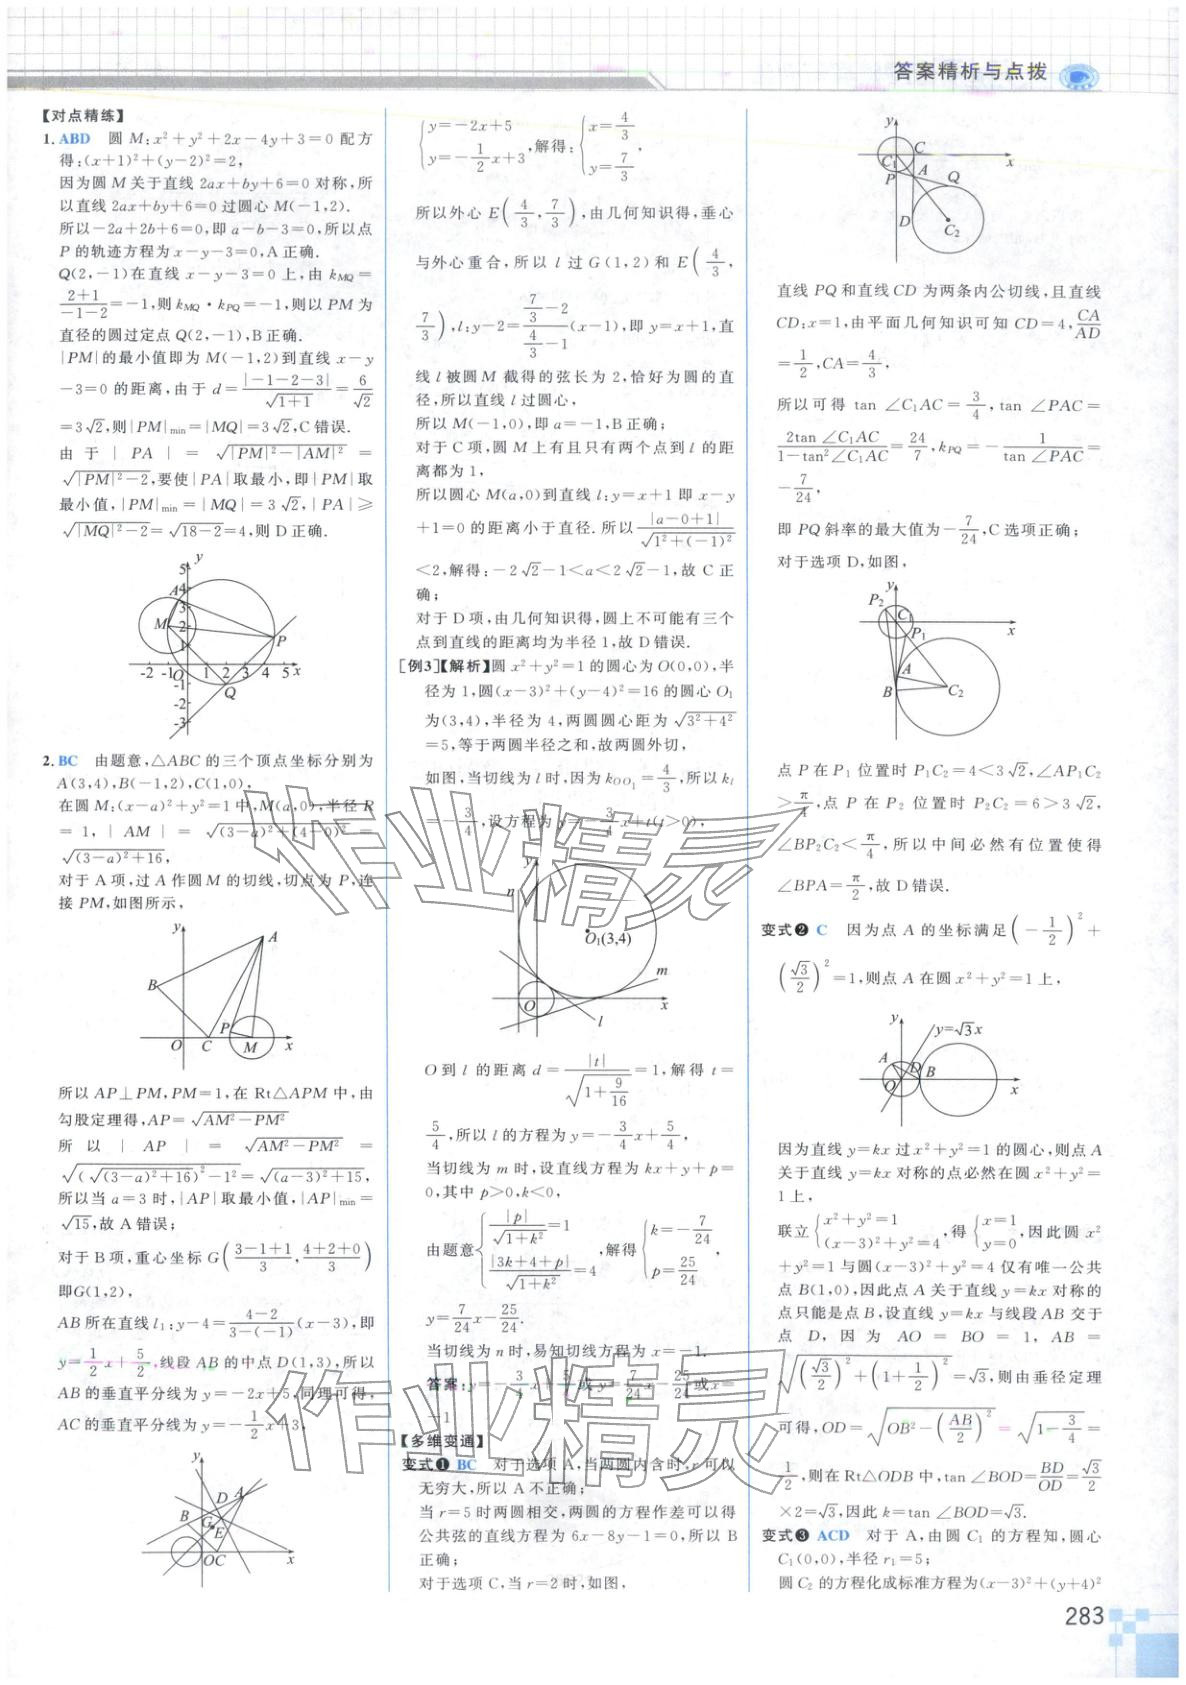 答案精析与点拨
【对点精练】
1. ABD 圆 M:x²+y²+2x-4y+3=0 配方
得:(x+1)²+(y-2)²=2,
因为圆 M 关于直线 2ax+by+6=0 对称,所
以直线 2ax+by+6=0 过圆心 M(-1,2).
所以-2a+2b+6=0,即 a-b-3=0,所以点
P 的轨迹方程为 x-y-3=0,A正确.
Q(2,-1)在直线 x-y-3=0 上,由 k_MQ=
(2+1)/(-1-2)=-1,则 k_MQ·k_PQ=-1,则以 PM 为
直径的圆过定点 Q(2,-1),B正确.
|PM|的最小值即为 M(-1,2)到直线 x-y
-3=0 的距离,由于 d=|-1-2-3|/√(1+1)=6/√2
=3√2,则|PM|min=|MQ|=3√2,C错误.
由于|PA|=√(|PM|²-|AM|²)=
√(|PM|²-2),要使|PA|取最小,即|PM|取
最小值,|PM|min=|MQ|=3√2,|PA|≥
√(|MQ|²-2)=√(18-2)=4,则 D 正确.
y
5
4
3
2
1
A
M
P
-2 -1 O 1 2 3 4 5 x
-1
-2
-3
Q
2. BC 由题意,△ABC 的三个顶点坐标分别为
A(3,4),B(-1,2),C(1,0),
在圆 M:(x-a)²+y²=1 中,M(a,0),半径 R
=1,|AM|=√((3-a)²+(4-0)²)=
√((3-a)²+16),
对于 A 项,过 A 作圆 M 的切线,切点为 P,连
接 PM,如图所示,
y
A
B
P
O C M x
所以 AP⊥PM,PM=1,在 Rt△APM 中,由
勾股定理得,AP=√(AM²-PM²)
所以|AP|=√(AM²-PM²)=
√((√((3-a)²+16))²-1²)=√((a-3)²+15),
所以当 a=3 时,|AP|取最小值,|AP|min=
√15,故 A 错误;
对于 B 项,重心坐标 G((3-1+1)/3,(4+2+0)/3)
即G(1,2),
AB 所在直线 l₁:y-4=(4-2)/(3-(-1))(x-3),即
y=1/2x+5/2,线段 AB 的中点 D(1,3),所以
AB 的垂直平分线为 y=-2x+5,同理可得,
AC 的垂直平分线为 y=-1/2x+3,
y
D A
B G
E
OC x
{y=-2x+5 y=-1/2x+3,解得:{x=4/3 y=7/3,
所以外心 E(4/3,7/3),由几何知识得,垂心
与外心重合,所以 l 过 G(1,2)和 E(4/3,
7/3),l:y-2=(7/3-2)/(4/3-1)(x-1),即 y=x+1,直
线 l 被圆 M 截得的弦长为 2,恰好为圆的直
径,所以直线 l 过圆心,
所以 M(-1,0),即 a=-1,B正确;
对于 C 项,圆 M 上有且只有两个点到 l 的距
离都为 1,
所以圆心 M(a,0)到直线 l:y=x+1 即 x-y
+1=0 的距离小于直径.所以|a-0+1|/√(1²+(-1)²)
<2,解得:-2√2-1<a<2√2-1,故 C 正
确;
对于 D 项,由几何知识得,圆上不可能有三个
点到直线的距离均为半径 1,故 D 错误.
[例3]【解析】圆 x²+y²=1 的圆心为 O(0,0),半
径为 1,圆(x-3)²+(y-4)²=16 的圆心 O₁
为(3,4),半径为 4,两圆圆心距为√(3²+4²)
=5,等于两圆半径之和,故两圆外切,
如图,当切线为 l 时,因为 k_OO₁=4/3,所以 k_l
=-3/4,设方程为 y=-3/4x+t(t>0),
y
n
O₁(3,4)
m
O x
l
O 到 l 的距离 d=|t|/√(1+9/16)=1,解得 t=
5/4,所以 l 的方程为 y=-3/4x+5/4,
当切线为 m 时,设直线方程为 kx+y+p=
0,其中 p>0,k<0,
由题意{|p|/√(1+k²)=1 |3k+4+p|/√(1+k²)=4,解得{k=-7/24 p=25/24
y=7/24x-25/24.
当切线为 n 时,易知切线方程为 x=-1.
答案:y=-3/4x+5/4或y=7/24x-25/24或x=
-1
【多维变通】
变式❶ BC 对于选项 A,当两圆内含时,r 可以
无穷大,所以 A 不正确;
当 r=5 时两圆相交,两圆的方程作差可以得
公共弦的直线方程为 6x-8y-1=0,所以 B
正确;
对于选项 C,当 r=2 时,如图,
y
C
C₁ A x
P Q
D
C₂
直线 PQ 和直线 CD 为两条内公切线,且直线
CD:x=1,由平面几何知识可知 CD=4,CA/AD
=1/2,CA=4/3,
所以可得 tan ∠C₁AC=3/4,tan ∠PAC=
2tan ∠C₁AC/(1-tan²∠C₁AC)=24/7,k_PQ=-1/tan ∠PAC=
-7/24,
即 PQ 斜率的最大值为-7/24,C 选项正确;
对于选项 D,如图,
y
P₂
C₁
P₁ x
A
B C₂
点 P 在 P₁ 位置时 P₁C₂=4<3√2,∠AP₁C₂
>π/4,点 P 在 P₂ 位置时 P₂C₂=6>3√2,
∠BP₂C₂<π/4,所以中间必然有位置使得
∠BPA=π/2,故 D 错误.
变式❷ C 因为点 A 的坐标满足(-1/2)²+
(√3/2)²=1,则点 A 在圆 x²+y²=1 上,
y
y=√3x
A D
O B x
因为直线 y=kx 过 x²+y²=1 的圆心,则点 A
关于直线 y=kx 对称的点必然在圆 x²+y²=
1 上,
联立{x²+y²=1 (x-3)²+y²=4,得{x=1 y=0,因此圆 x²
+y²=1 与圆(x-3)²+y²=4 仅有唯一公共
点 B(1,0),因此点 A 关于直线 y=kx 对称的
点只能是点 B,设直线 y=kx 与线段 AB 交于
点 D,因为 AO=BO=1,AB=
√((√3/2)²+(1+1/2)²)=√3,则由垂径定理
可得,OD=√(OB²-(AB/2)²)=√(1-3/4)=
1/2,则在 Rt△ODB 中,tan ∠BOD=BD/OD=√3/2
×2=√3,因此 k=tan ∠BOD=√3.
变式❸ ACD 对于 A,由圆 C₁ 的方程知,圆心
C₁(0,0),半径 r₁=5;
圆 C₂ 的方程化成标准方程为(x-3)²+(y+4)²
283
作业精灵
作业精灵